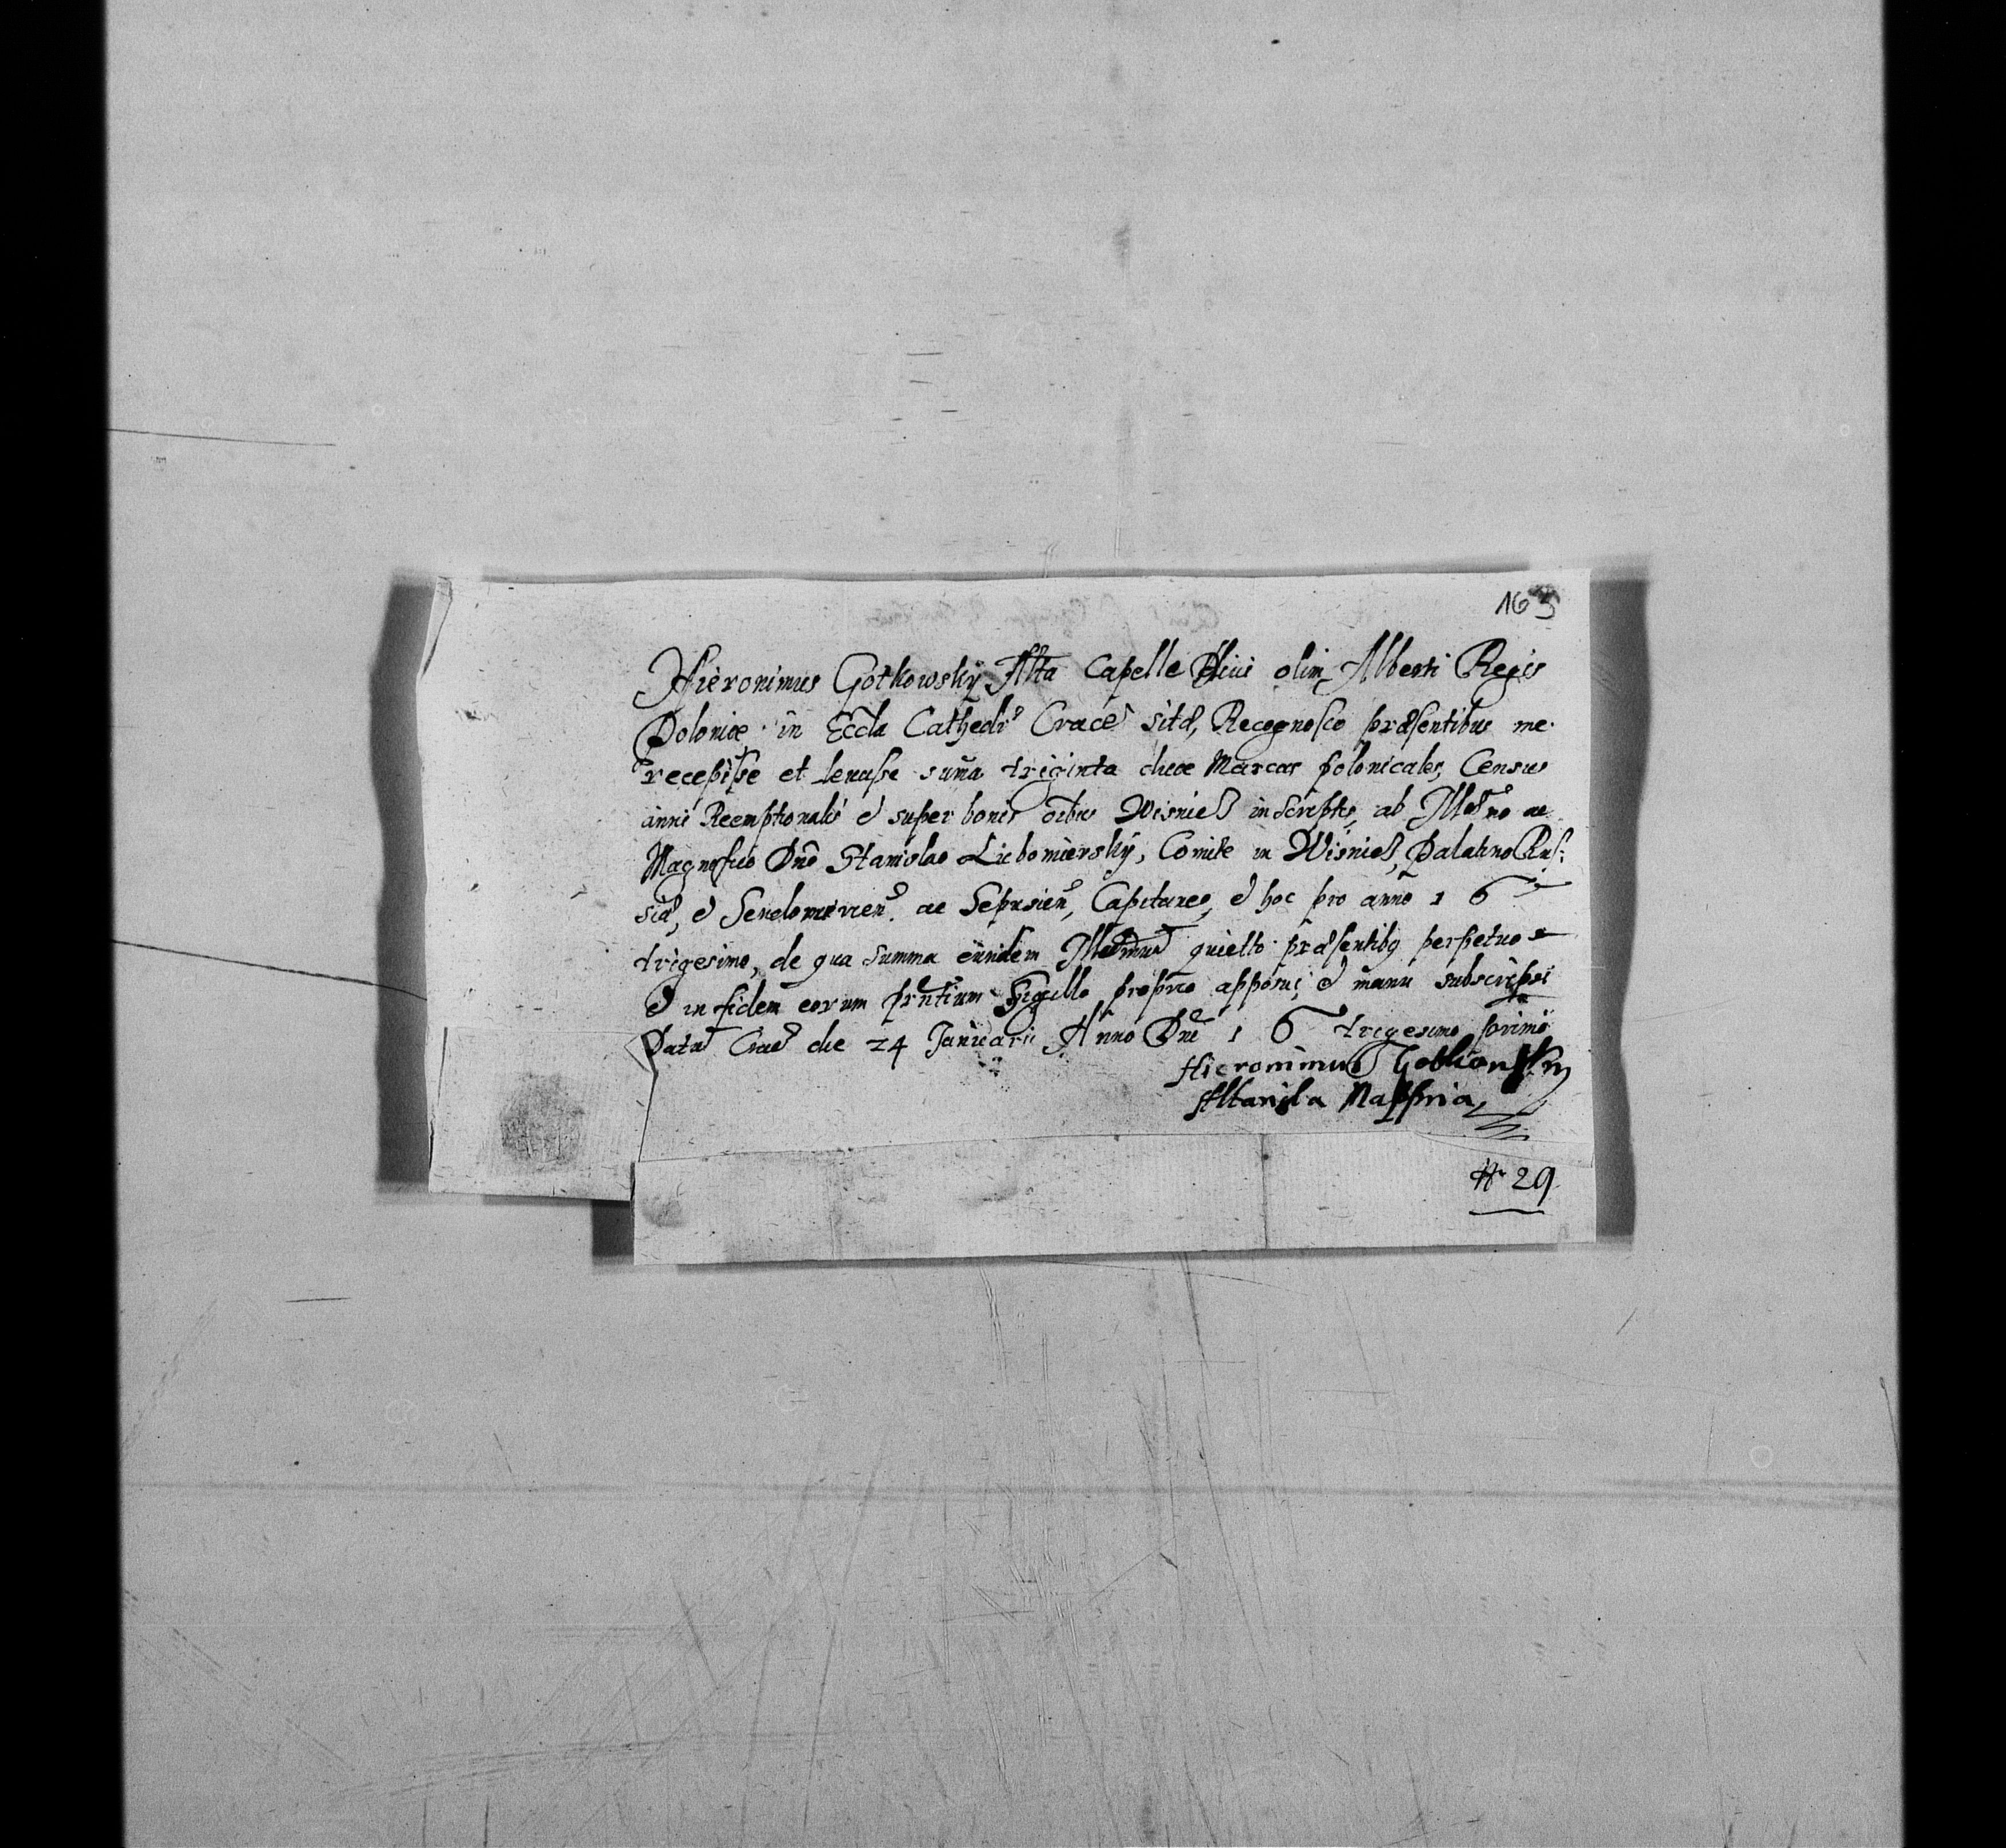 163
Hieronimus Gotkowskÿ Alta Capelle Diui olim Alberti Regis
Poloniæ in Eccla Cathedr Crace sitæ, Recognosco præsentibus me
recepisse et leuasse suma triginta duæ Marcas polonicales, Census
anni Reemptionalis et super bonis oibus Wisnicz inscriptis, ab Illmo ac
Magnifico Dno Stanislao Liebomierskÿ, Comite in Wisnicz, Palatino Rus:
siæ, et Sendomirien. ac Sepusien, Capitaneo, et hoc pro anno 1 6
trigesimo, de qua summa eundem Illmum quietto præsentibq perpetuo
et in fidem eorum prntium Sigillo proprio apposui et manu subscripsi
Datæ Crac die 24 Januarii Anno Dni 1 6 trigesimo primo
Hieronimus Gotkowsky
Altarista
# 29